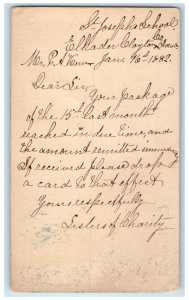 St. Joseph's School
Elkader Clayton Co Iowa
Mr. P. A. Kenn Jan. 16th 1882.
Dear Sir,
Your package
of the 13th last month
reached in due time, and
the amount remitted immediately
If received please drop
a card to that effect
Yours respectfully
Sisters of Charity